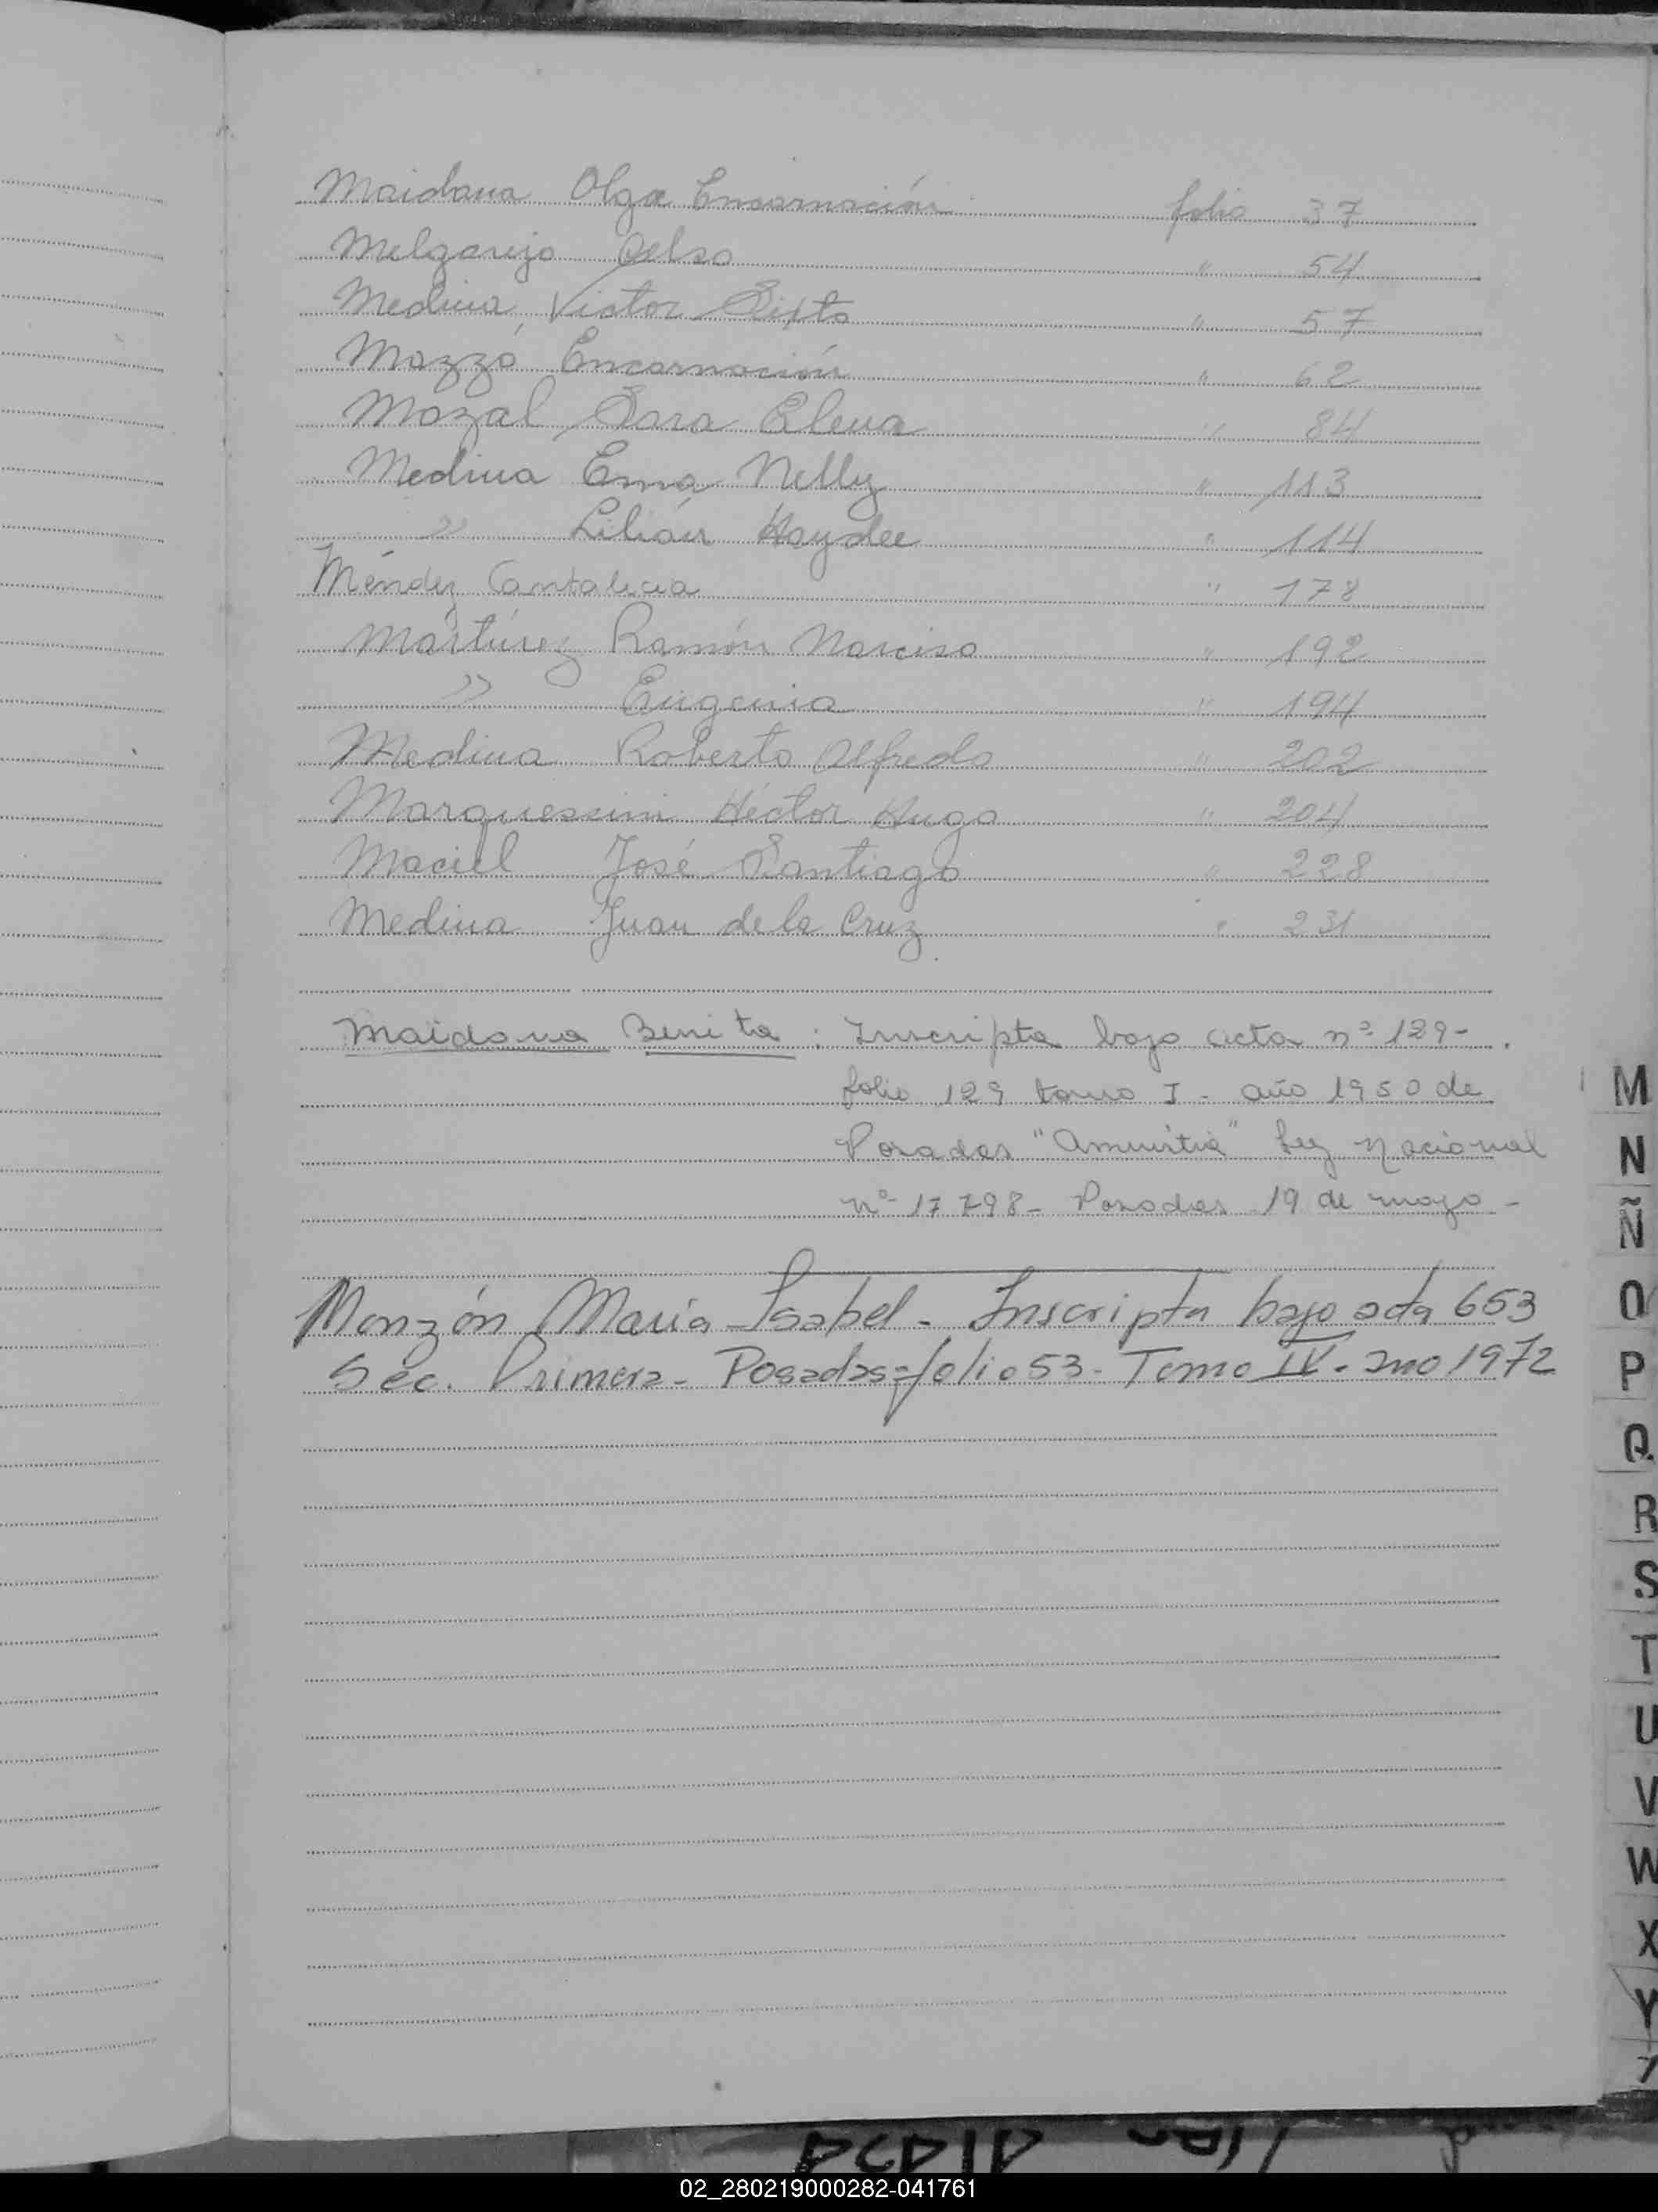 Maidana Olga Encarnación folio 37
Melgarejo Celso " 54
Medina, Victor Sixto " 57
Mazzó Encarnación " 62
Mazal Sara Elena " 84
Medina Ema Nelly " 113
" Lilián Haydee " 114
Méndez Cantalicia " 178
Martínez Ramón Narciso " 192
" Eugenia " 194
Medina Roberto Alfredo " 202
Marquessini Héctor Hugo " 204
Maciel José Santiago " 228
Medina Juan de la Cruz " 231
Maidana Benita : Inscripta bajo acta nº 129-
folio 129 tomo I - año 1950 de
Posadas "Amnistia" Ley Nacional
nº 17798- Posadas 19 de mayo -
Monzón María Isabel - Inscripta bajo acta 653
Sec. Primera - Posadas = folio 53 - Tomo IV - año 1972
M
N
Ñ
O
P
Q
R
S
T
U
V
W
X
Y
02_280219000282-041761